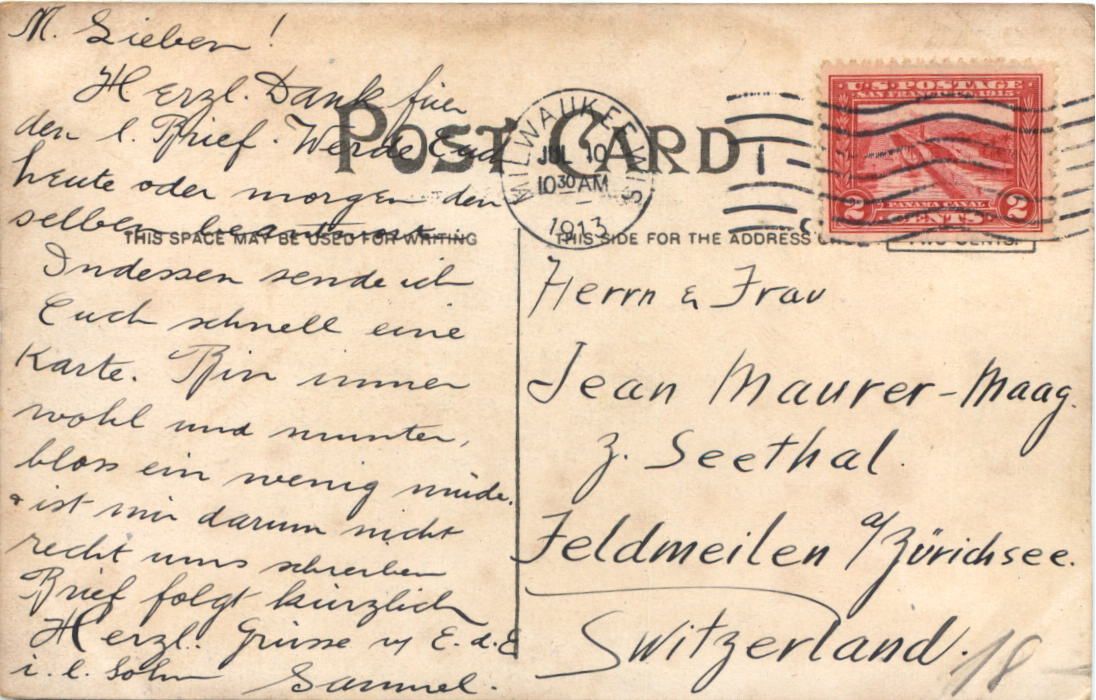 M. Lieben!
Herzl. Dank für
den l. Brief. Werde Euch
heute oder morgen den
selben beantwort.
Indessen sende ich
Euch schnell eine
Karte. Bin immer
wohl und munter,
bloss ein wenig müde.
& ist mir darum nicht
recht ums schreiben
Brief folgt kürzlich
Herzl. Grüsse v/ E. d. E
i. l. Sohn Samuel.
POST CARD
THIS SPACE MAY BE USED FOR WRITING
THIS SIDE FOR THE ADDRESS
TWO CENTS.
MILWAUKEE, WIS
JUL 10
10 30 AM
1913
U.S. POSTAGE
SAN FRANCISCO 1915
PANAMA CANAL
2 CENTS 2
Herrn & Frau
Jean Maurer-Maag.
z. Seethal.
Feldmeilen a/Zürichsee.
Switzerland.
18